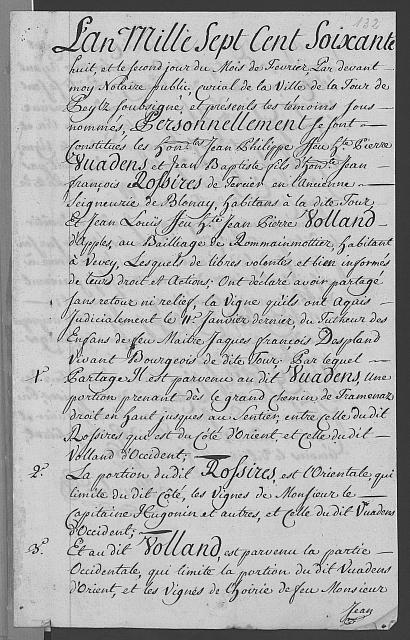 132
L'an Mille Sept Cent Soixante
huit, et le second jour du Mois de Fevrier, Par devant
moy Notaire public, curial de la Ville de la Tour de
Peylz soubsigné, et présents les temoins sous-
nommés, Personnellement se sont
Constitués les Hon.bles Jean Philippe ffeu H.ble Pierre
Vuadens et Jean Baptiste fils d'Hon.ble Jean
françois Rossires de Fercier en l'ancienne
Seigneurie de Blonay, Habitans à la dite Tour
Et Jean Louis ffeu H.ble Jean Pierre Volland
d'Apples au Bailliage de Rommainmottier, Habitant
à Vevey, Lesquels de libres volontés et bien informés
de leurs droit et Actions, Ont déclaré avoir partagé
sans retour ni relief, la Vigne qu'ils ont
Judicialement le Janvier dernier, du Tutheur des
Enfans de feu Maitre Jaques françois Despland
Vivant Bourgeois de dite Tour Par lequel
1.° Partage Il est parvenu audit Vuadens, Une
portion prenant dès le grand chemin de Framenaz
droit en Haut jusques au Sentier, entre celle dudit
Rossires qui est du Côté d'Orient, et Celle dudit
Volland d'Occident;
2.° La portion dudit Rossires, est l'Orientale qui
limite dudit Côté, les Vignes de Monsieur le
Capitaine Hugonin et autres, et Celle dudit Vuadens
d'Occident;
3.° Et audit Volland, est parvenu la partie
Occidentale, qui limite la portion dudit Vuadens
d'Orient, et les Vignes de l'hoirie de feu Monsieur
Jean